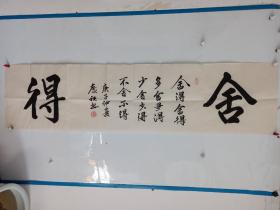 舍
舍得舍得
多舍多得
少舍少得
不舍不得
庚子仲夏
得